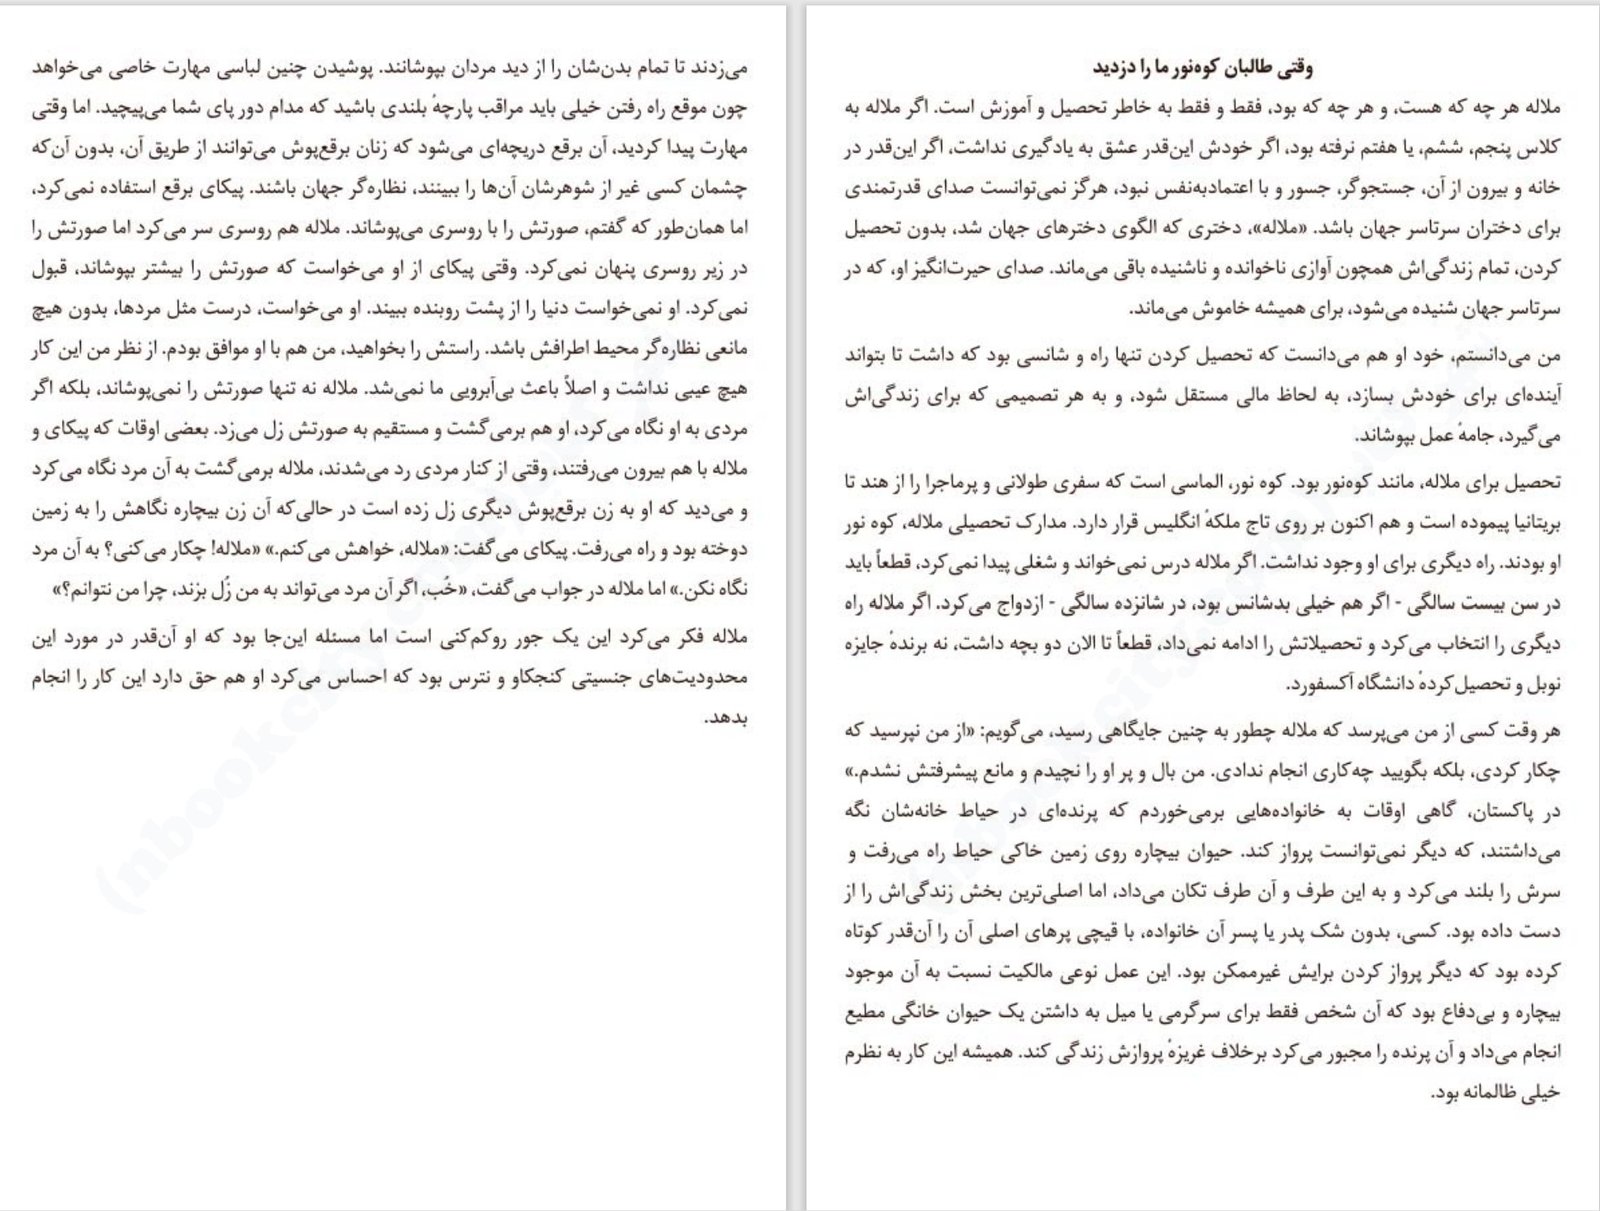 وقتی طالبان کوه‌نور ما را دزدید
ملاله هر چه که هست، و هر چه که بود، فقط و فقط به خاطر تحصیل و آموزش است. اگر ملاله به
کلاس پنجم، ششم، یا هفتم نرفته بود، اگر خودش این‌قدر عشق به یادگیری نداشت، اگر این‌قدر در
خانه و بیرون از آن، جستجوگر، جسور و با اعتمادبه‌نفس نبود، هرگز نمی‌توانست صدای قدرتمندی
برای دختران سرتاسر جهان باشد. «ملاله»، دختری که الگوی دخترهای جهان شد، بدون تحصیل
کردن، تمام زندگی‌اش همچون آوازی ناخوانده و ناشنیده باقی می‌ماند. صدای حیرت‌انگیز او، که در
سرتاسر جهان شنیده می‌شود، برای همیشه خاموش می‌ماند.
من می‌دانستم، خود او هم می‌دانست که تحصیل کردن تنها راه و شانسی بود که داشت تا بتواند
آینده‌ای برای خودش بسازد، به لحاظ مالی مستقل شود، و به هر تصمیمی که برای زندگی‌اش
می‌گیرد، جامهٔ عمل بپوشاند.
تحصیل برای ملاله، مانند کوه‌نور بود. کوه نور، الماسی است که سفری طولانی و پرماجرا را از هند تا
بریتانیا پیموده است و هم اکنون بر روی تاج ملکهٔ انگلیس قرار دارد. مدارک تحصیلی ملاله، کوه نور
او بودند. راه دیگری برای او وجود نداشت. اگر ملاله درس نمی‌خواند و شغلی پیدا نمی‌کرد، قطعاً باید
در سن بیست سالگی - اگر هم خیلی بدشانس بود، در شانزده سالگی - ازدواج می‌کرد. اگر ملاله راه
دیگری را انتخاب می‌کرد و تحصیلاتش را ادامه نمی‌داد، قطعاً تا الان دو بچه داشت، نه برندهٔ جایزه
نوبل و تحصیل‌کردهٔ دانشگاه آکسفورد.
هر وقت کسی از من می‌پرسد که ملاله چطور به چنین جایگاهی رسید، می‌گویم: «از من نپرسید که
چکار کردی، بلکه بگویید چه‌کاری انجام ندادی. من بال و پر او را نچیدم و مانع پیشرفتش نشدم.»
در پاکستان، گاهی اوقات به خانواده‌هایی برمی‌خوردم که پرنده‌ای در حیاط خانه‌شان نگه
می‌داشتند، که دیگر نمی‌توانست پرواز کند. حیوان بیچاره روی زمین خاکی حیاط راه می‌رفت و
سرش را بلند می‌کرد و به این طرف و آن طرف تکان می‌داد، اما اصلی‌ترین بخش زندگی‌اش را از
دست داده بود. کسی، بدون شک پدر یا پسر آن خانواده، با قیچی پرهای اصلی آن را آن‌قدر کوتاه
کرده بود که دیگر پرواز کردن برایش غیرممکن بود. این عمل نوعی مالکیت نسبت به آن موجود
بیچاره و بی‌دفاع بود که آن شخص فقط برای سرگرمی یا میل به داشتن یک حیوان خانگی مطیع
انجام می‌داد و آن پرنده را مجبور می‌کرد برخلاف غریزهٔ پروازش زندگی کند. همیشه این کار به نظرم
خیلی ظالمانه بود.
می‌زدند تا تمام بدن‌شان را از دید مردان بپوشانند. پوشیدن چنین لباسی مهارت خاصی می‌خواهد
چون موقع راه رفتن خیلی باید مراقب پارچهٔ بلندی باشید که مدام دور پای شما می‌پیچید. اما وقتی
مهارت پیدا کردید، آن برقع دریچه‌ای می‌شود که زنان برقع‌پوش می‌توانند از طریق آن، بدون آن‌که
چشمان کسی غیر از شوهرشان آن‌ها را ببینند، نظاره‌گر جهان باشند. پیکای برقع استفاده نمی‌کرد،
اما همان‌طور که گفتم، صورتش را با روسری می‌پوشاند. ملاله هم روسری سر می‌کرد اما صورتش را
در زیر روسری پنهان نمی‌کرد. وقتی پیکای از او می‌خواست که صورتش را بیشتر بپوشاند، قبول
نمی‌کرد. او نمی‌خواست دنیا را از پشت روبنده ببیند. او می‌خواست، درست مثل مردها، بدون هیچ
مانعی نظاره‌گر محیط اطرافش باشد. راستش را بخواهید، من هم با او موافق بودم. از نظر من این کار
هیچ عیبی نداشت و اصلاً باعث بی‌آبرویی ما نمی‌شد. ملاله نه تنها صورتش را نمی‌پوشاند، بلکه اگر
مردی به او نگاه می‌کرد، او هم برمی‌گشت و مستقیم به صورتش زل می‌زد. بعضی اوقات که پیکای و
ملاله با هم بیرون می‌رفتند، وقتی از کنار مردی رد می‌شدند، ملاله برمی‌گشت به آن مرد نگاه می‌کرد
و می‌دید که او به زن برقع‌پوش دیگری زل زده است در حالی‌که آن زن بیچاره نگاهش را به زمین
دوخته بود و راه می‌رفت. پیکای می‌گفت: «ملاله، خواهش می‌کنم.» «ملاله! چکار می‌کنی؟ به آن مرد
نگاه نکن.» اما ملاله در جواب می‌گفت، «خُب، اگر آن مرد می‌تواند به من زُل بزند، چرا من نتوانم؟»
ملاله فکر می‌کرد این یک جور روکم‌کنی است اما مسئله این‌جا بود که او آن‌قدر در مورد این
محدودیت‌های جنسیتی کنجکاو و نترس بود که احساس می‌کرد او هم حق دارد این کار را انجام
بدهد.